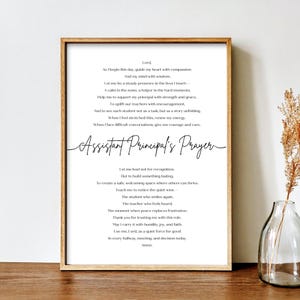 Lord,
As I begin this day, guide my heart with compassion
And my mind with wisdom.
Let me be a steady presence in the lives I touch -
A calm in the storm, a helper in the hard moments.
Help me to support my principal with strength and grace,
To uplift our teachers with encouragement,
And to see each student not as a task, but as a story unfolding.
When I feel stretched thin, renew my energy.
When I face difficult conversations, give me courage and care.
Assistant Principal's Prayer
Let me lead not for recognition,
But to build something lasting,
To create a safe, welcoming space where others can thrive.
Teach me to notice the quiet wins:
The student who smiles again,
The teacher who feels heard,
The moment when peace replaces frustration.
Thank you for trusting me with this role.
May I carry it with humility, joy, and faith.
Use me, Lord, as a quiet force for good
In every hallway, meeting, and decision today.
Amen.